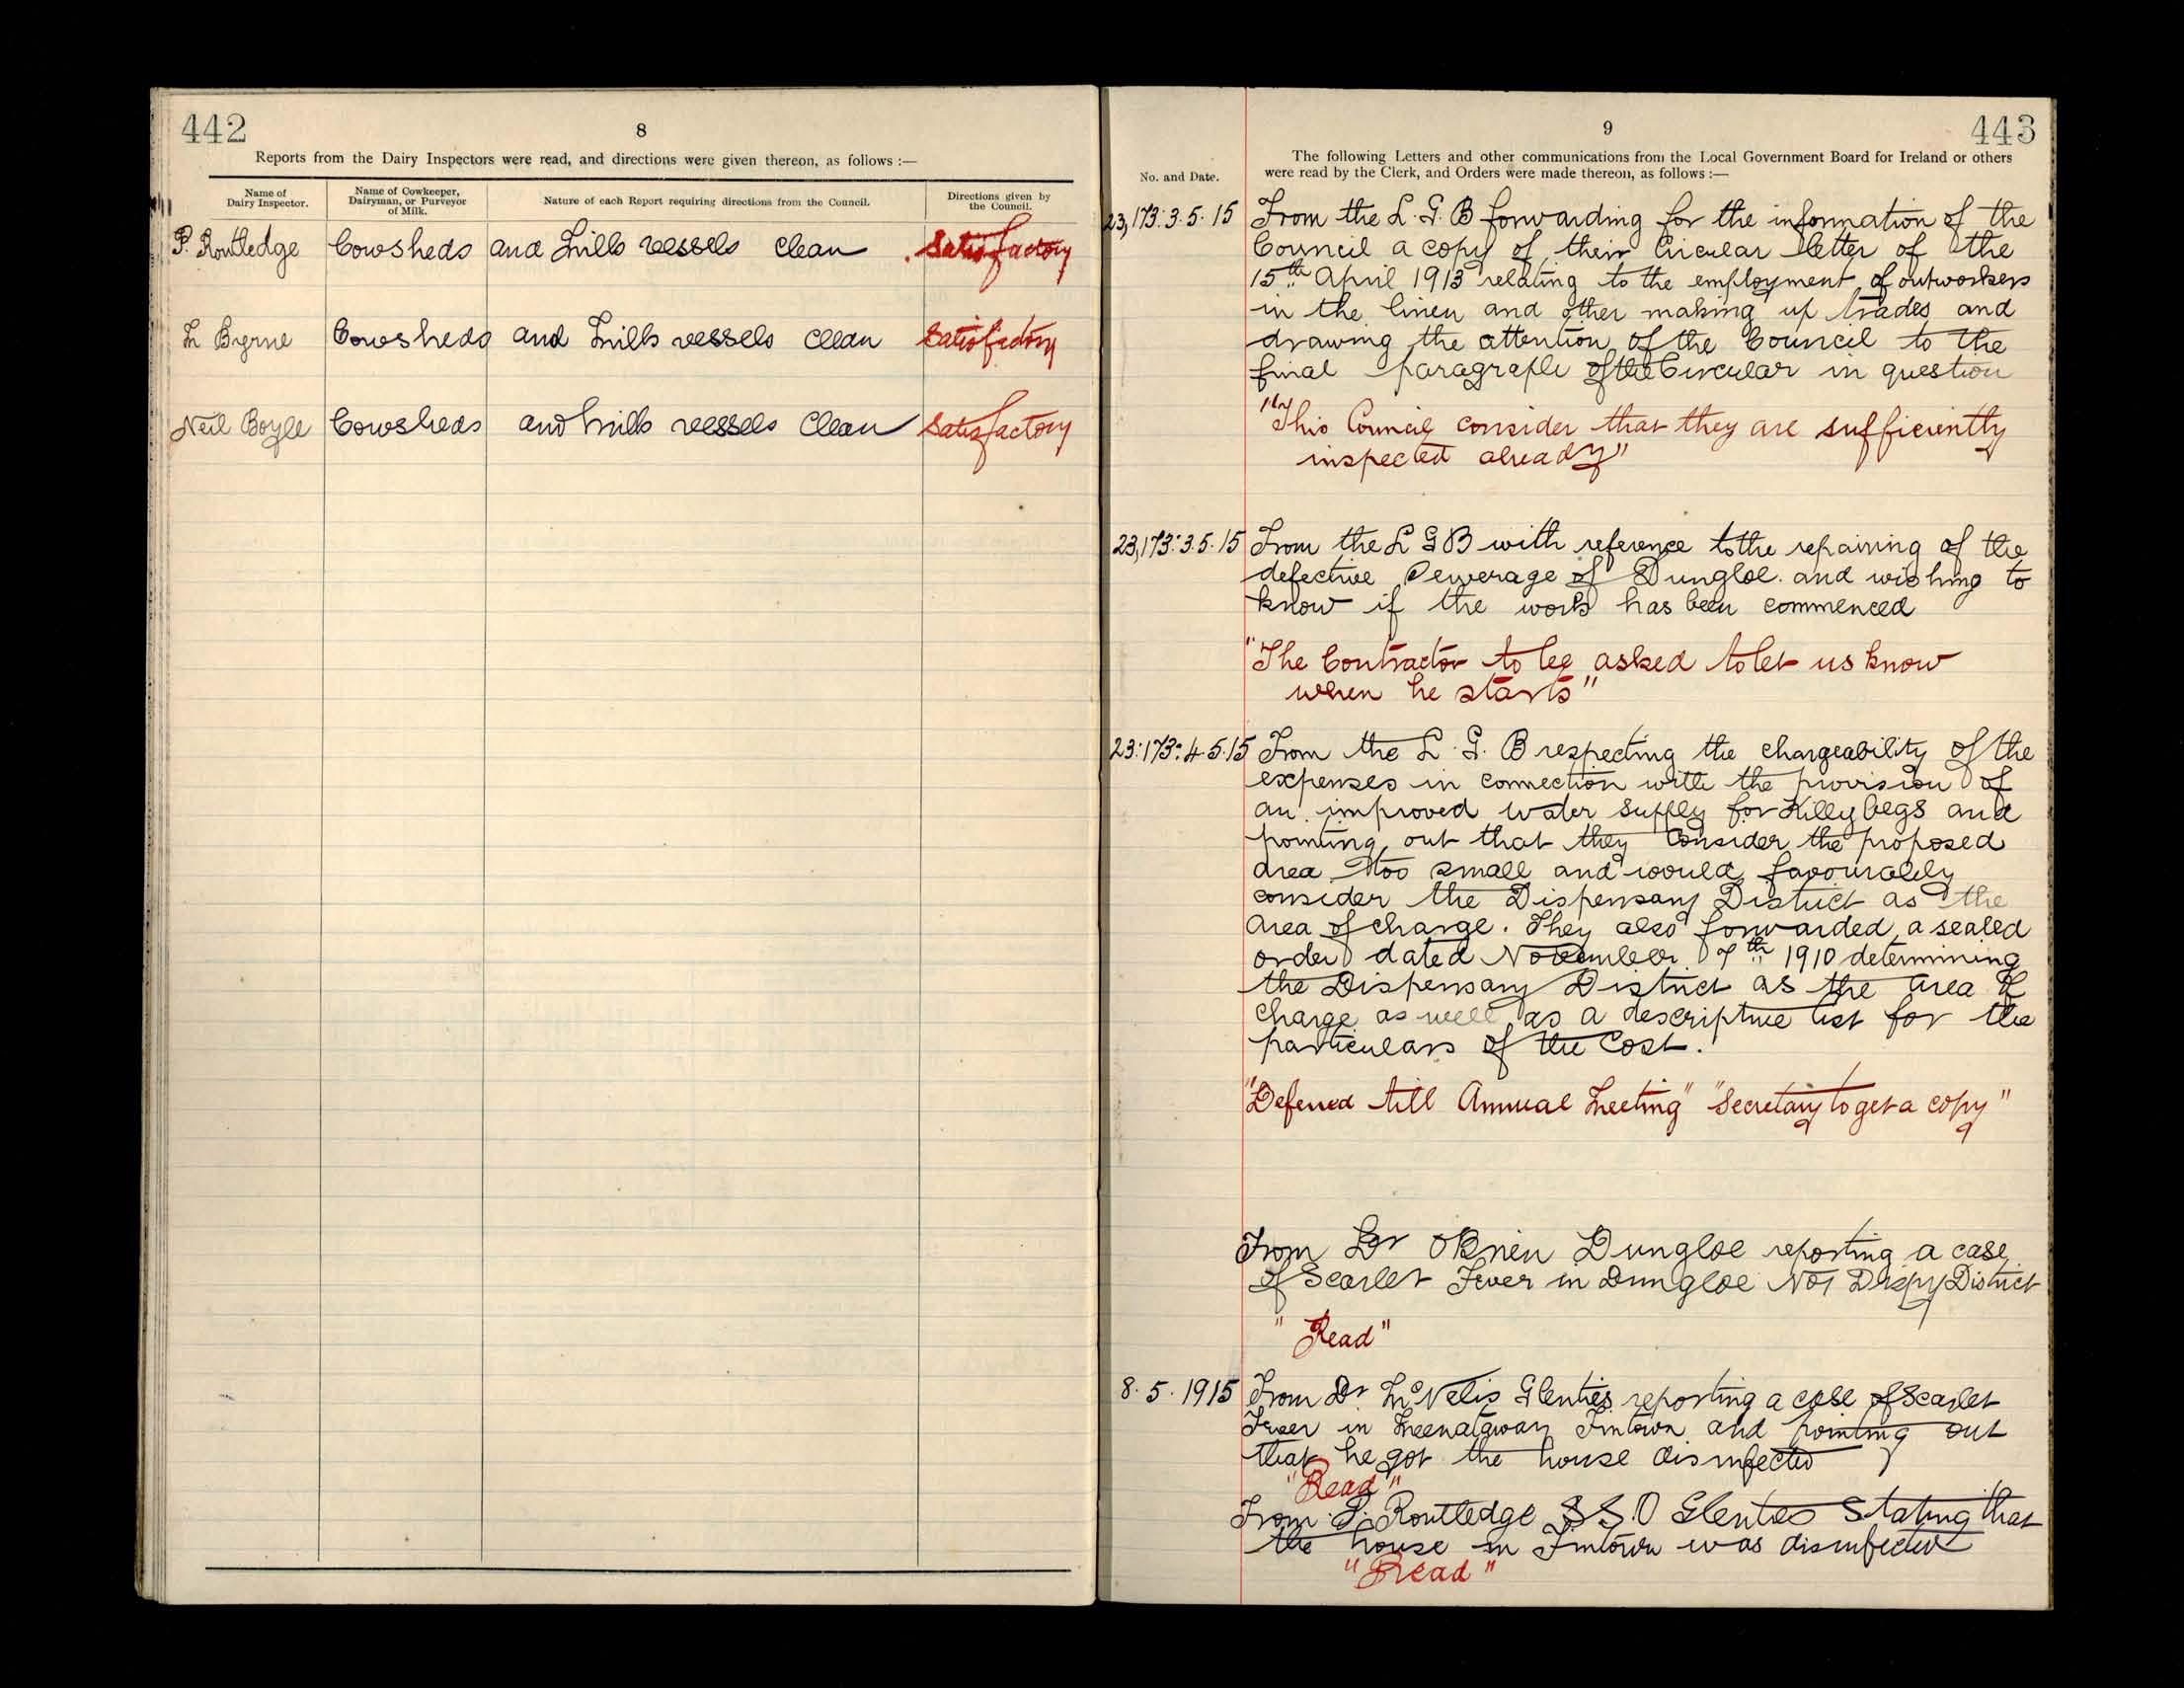 442
8
Reports from the Dairy Inspectors were read, and directions were given thereon, as follows :—
Name of Dairy Inspector.
Name of Cowkeeper, Dairyman, or Purveyor of Milk.
Nature of each Report requiring directions from the Council.
Directions given by the Council.
P. Routledge Cowsheds and Milk vessels clean . Satisfactory
M Byrne Cowsheds and Milk vessels clean Satisfactory
Neil Boyle Cowsheds and Milk vessels Clean Satisfactory
443
9
No. and Date.
The following Letters and other communications from the Local Government Board for Ireland or others
were read by the Clerk, and Orders were made thereon, as follows :—
23,173: 3. 5. 15 From the L. G. B forwarding for the information of the
Council a copy of their Circular letter of the
15th April 1913 relating to the employment of outworkers
in the linen and other making up trades and
drawing the attention of the Council to the
final paragraph of the Circular in question
"This Council consider that they are sufficiently
inspected already"
23,173: 3. 5. 15 From the L G B with reference to the repairing of the
defective Sewerage of Dungloe. and wishing to
know if the work has been commenced
"The Contractor to be asked to let us know
when he starts"
23:173: 4. 5. 15 From the L. G. B respecting the chargeability of the
expenses in connection with the provision of
an improved water supply for Killybegs and
pointing out that they consider the proposed
area too small and would favourably
consider the Dispensary District as the
area of charge. They also forwarded a sealed
order dated November 7th 1910 determining
the Dispensary District as the area of
charge as well as a descriptive list for the
particulars of the Cost.
"Deferred till Annual Meeting" "Secretary to get a copy"
From Dr OBrien Dungloe reporting a case
of Scarlet Fever in Dungloe No1 Dispy District
"Read"
8. 5. 1915 From Dr McNelis Glenties reporting a case of Scarlet
Fever in Fintown and pointing out
that he got the house disinfected
"Read"
From P. Routledge S S. O Glenties Stating that
the house in Fintown was disinfected
"Read"